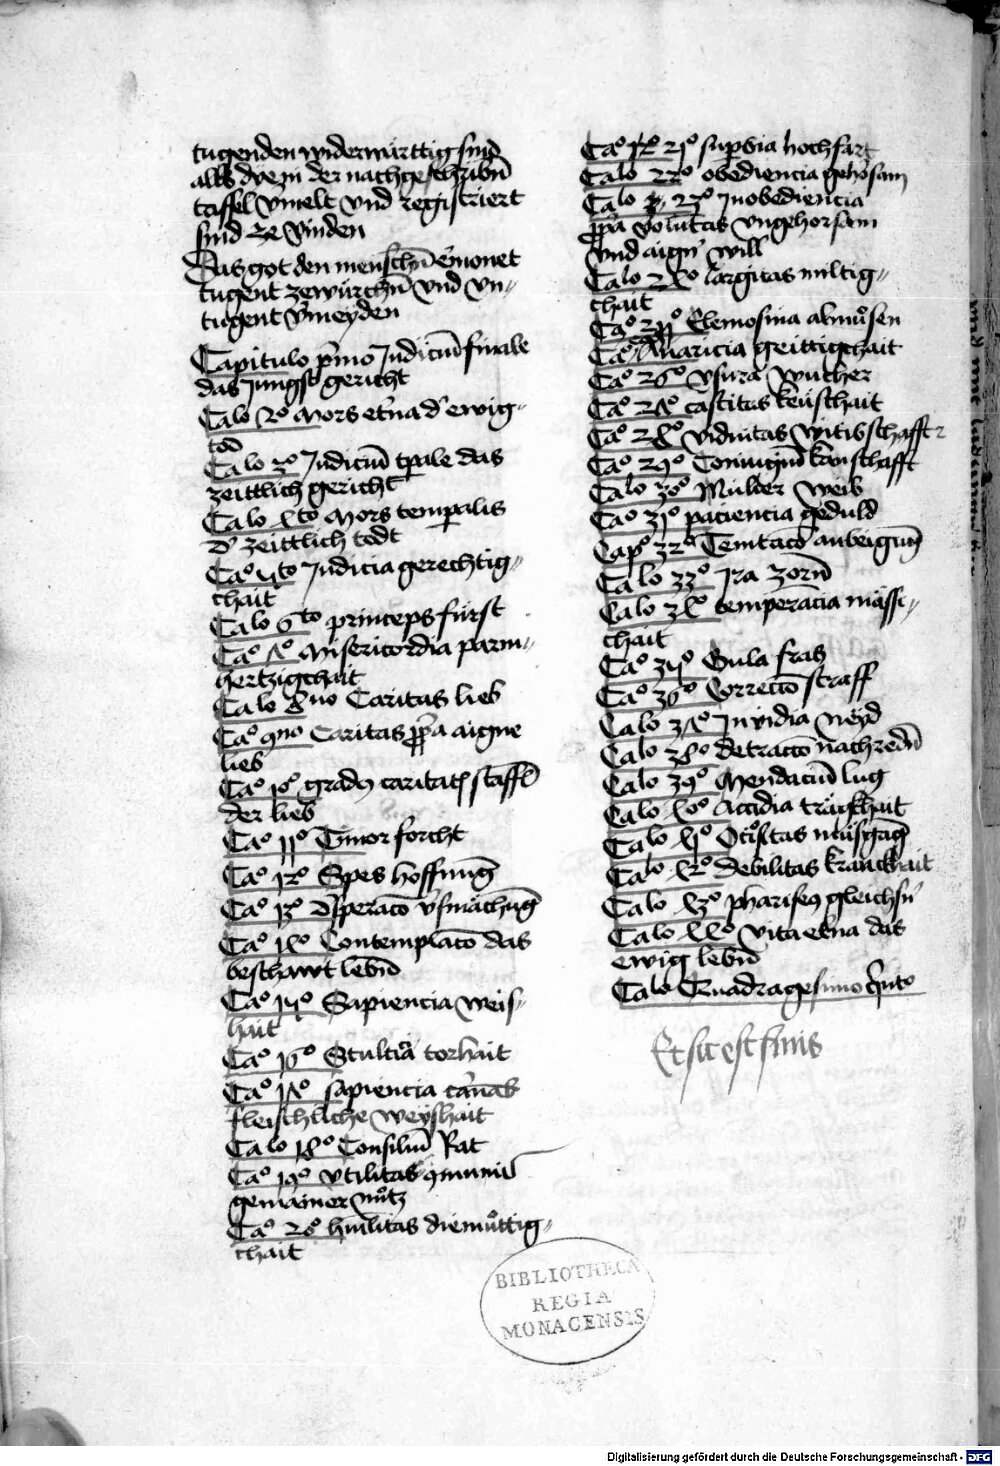 tugenden widerwürttig sind
alls dye in der nachgeschribn̄
taffel vmelt vnd registriert
sind ze vinden
Das got den mensch̄n ermonet
tugent ze würchn̄ vnd vn-
tugent v̓meyden
Capitulo p̓mo Judiciū finale
das Jungst gericht
Calo 2o Mors et̓na d̓ ewig
tod
Calo 3o Judiciū tpale das
zeittlich gericht
Calo 4to Mors temꝑalis
d̓ zeittlich todt
Cao 5to Judicia gerechtig-
chait
Calo 6to princeps fürst
Cao 7o Misericordia parm-
hertzigchait
Calo 8uo Caritas lieb
Cao 9no Caritas ꝓp̓a aigne
lieb
Cao 10o gradꝯ caritatꝭ staffl̄
der lieb
Cao 11o Timor forcht
Cao 12o Spes hoffnunḡ
Cao 13o Dꝭperacō v̓smächūg
Cao 14o Contemplacō das
beschawt lebn̄
Cao 15o Sapiencia weis-
hait
Cao 16o Stulticia torhait
Cao 17o sapiencia carnal̄
fleischliche weyshait
Calo 18o Consiliū Rat
Cao 19o vtilitas ꝯmunis
gemainer nůtz
Cao 20o hūilitas diemůttig-
chait
Cao 21o suꝑbia hochfart
Calo 22o obediencia gehorsam
Calo 23o Inobediencia
ꝓp̓a volūtas vngehorsam
vnd aign̓ will
Calo 24o largitas miltig-
chait
Cao 25o Elemosina almůsen
Cao Auaricia geittigchait
Cao 26o vsura wucher
Cao 27o castitas keüschait
Cao 28o viduitas witibschafft
Cao 29o Coniugiū kanschafft
Calo 30o Mulier weib
Cao 31o paciencia geduld
Capo 32o Temtacō anveigūg
Calo 33o Ira zorn̄
Calo 34o temperācia mässi-
chait
Cao 35o Gula fras
Cao 36o Correccō straff
Calo 37o Invidia neyd
Calo 38o detraccō nachredn̄
Calo 39o Mendaciū lug
Calo 40o Accidia träkhait
Calo 41o Ociositas müssgāg
Calo 42o debilitas kranckhait
Calo 43o phariseꝯ gleichsn̓
Calo 44o vita et̓na das
ewig lebn̄
Calo Quadragesimo q̓nto
Et sic est finis
BIBLIOTHECA
REGIA
MONACENSIS
Digitalisierung gefördert durch die Deutsche Forschungsgemeinschaft - DFG